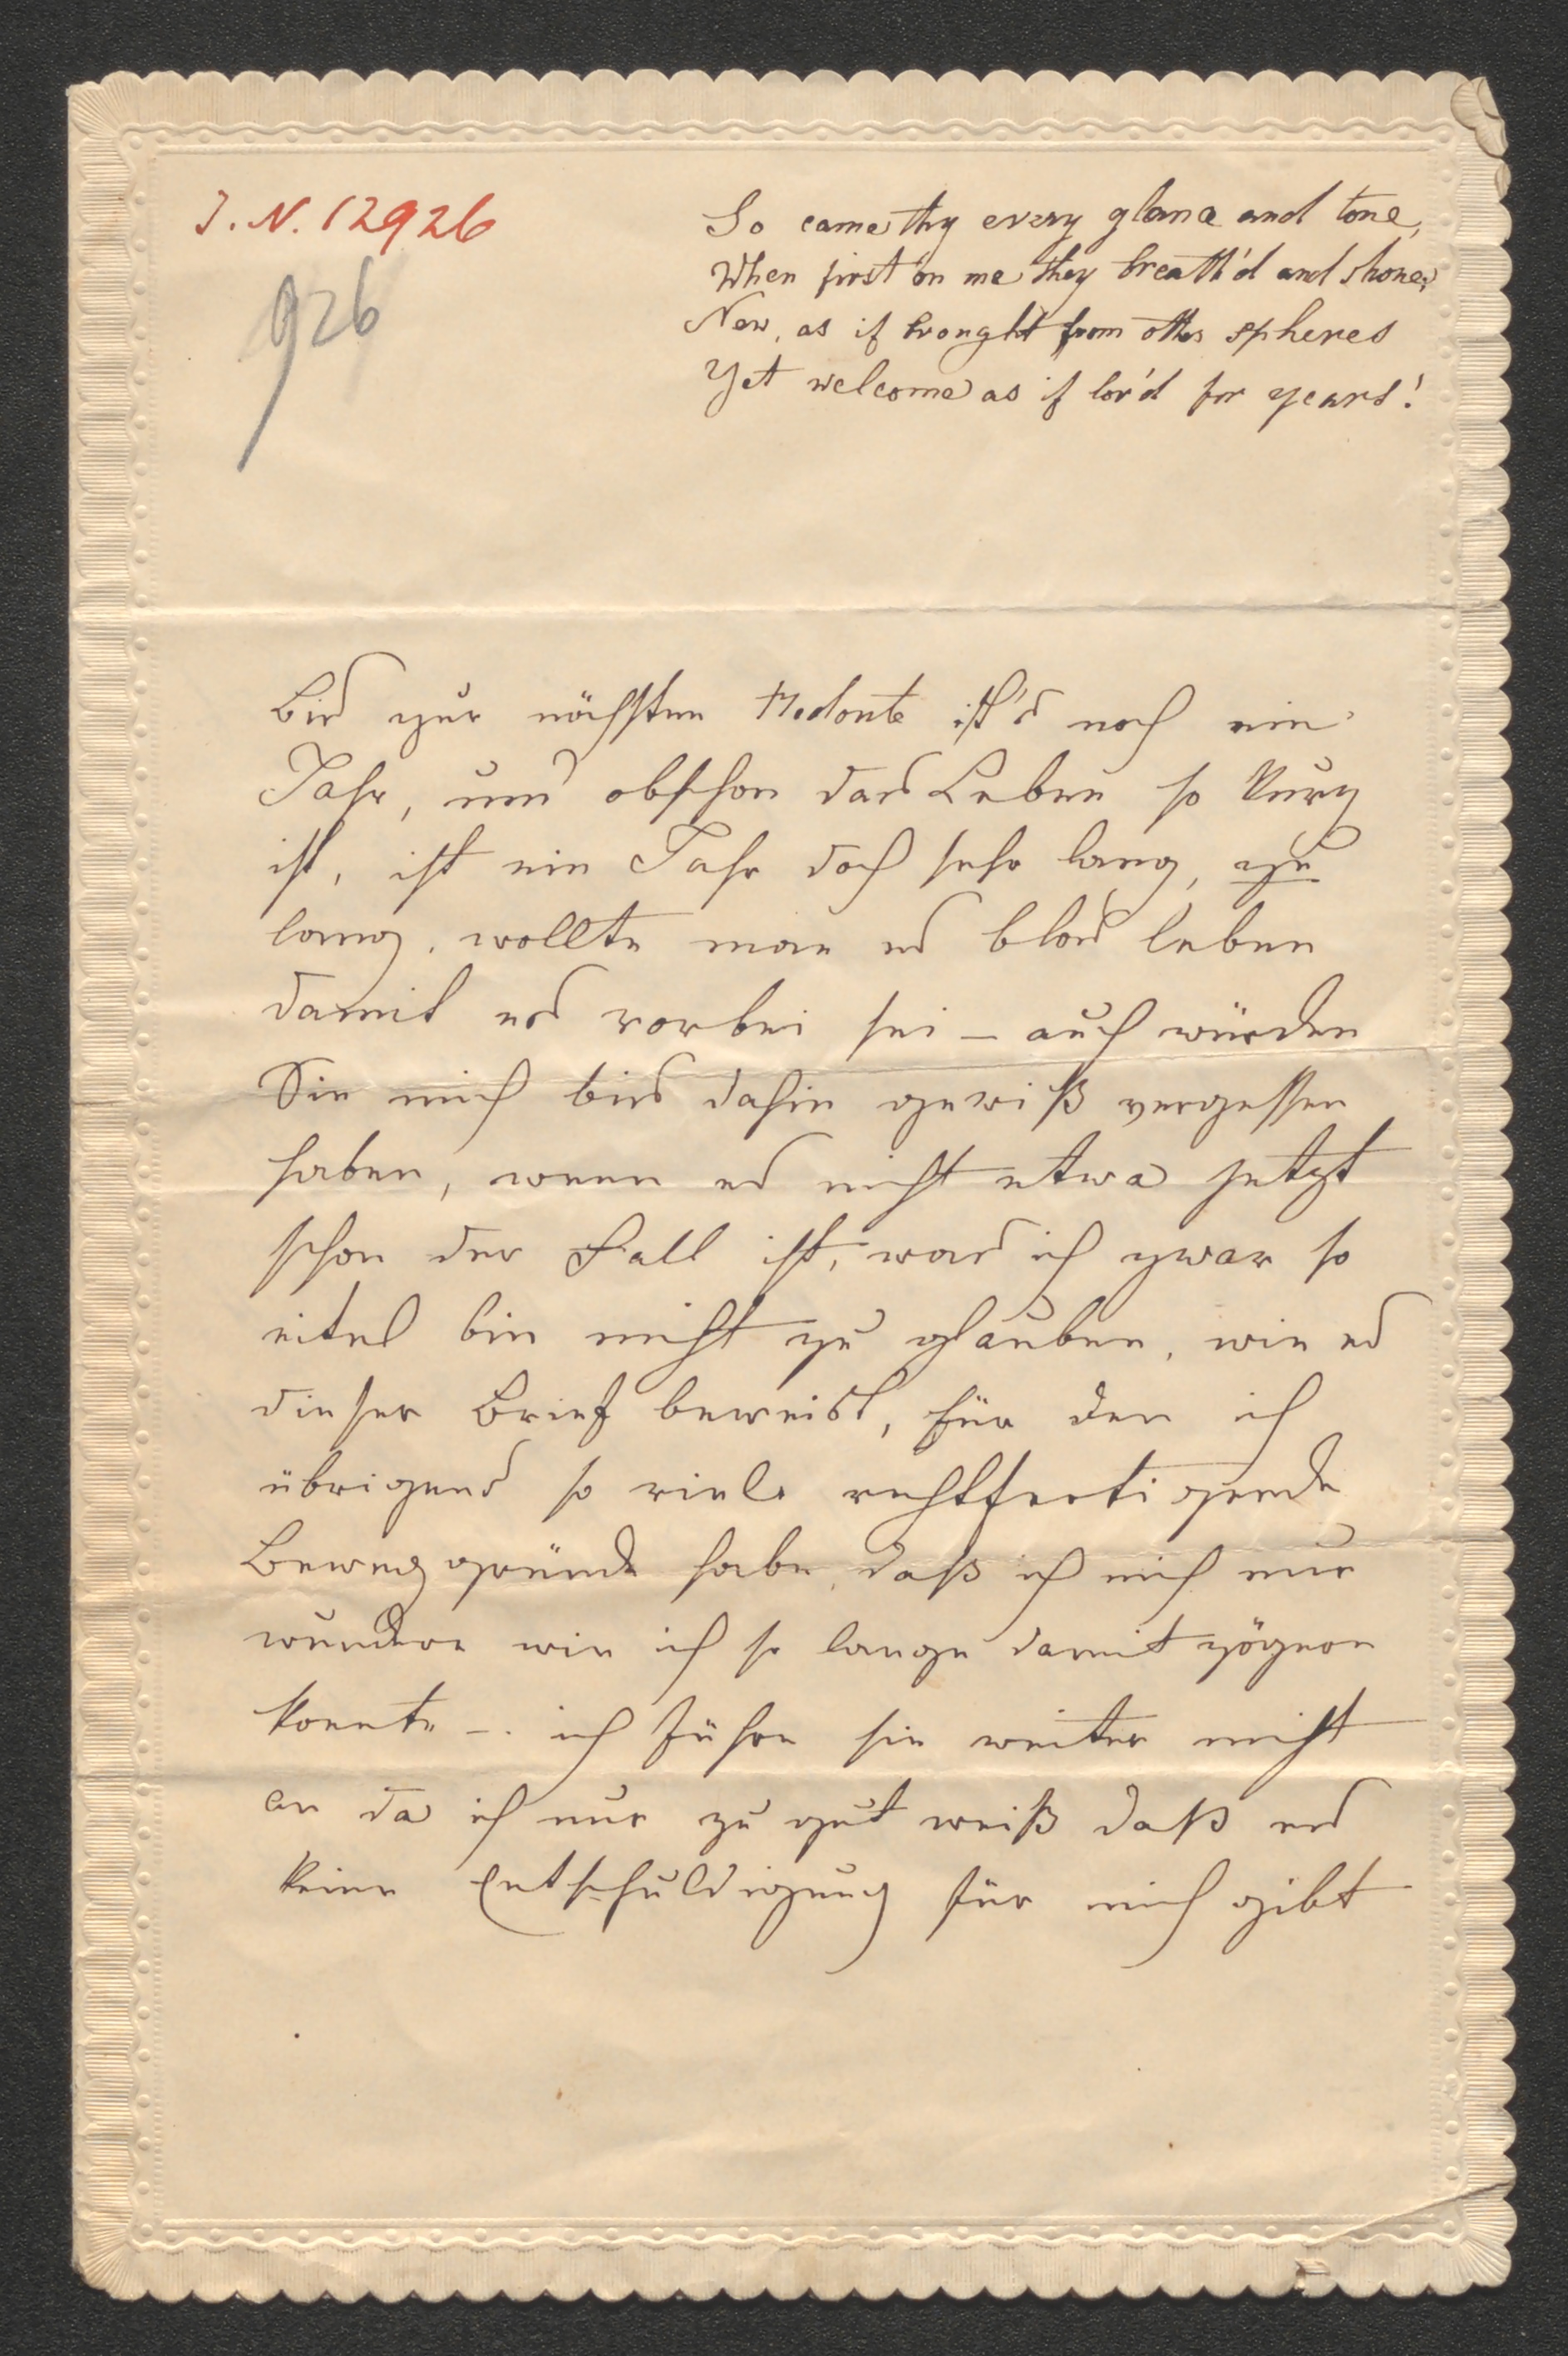 I. N. 12926
926
So came thy every glance and tone,
When first on me they breath'd and shone;
New, as if brought from other spheres
Yet welcome as if lov'd for years!
Bis zur nächsten Redoute ist's noch ein
Jahr, und obschon das Leben so kurz
ist, ist ein Jahr doch sehr lang, zu
lang, wollte man es blos leben
damit es vorbei sei – auch würden
Sie mich bis dahin gewiß vergessen
haben, wenn es nicht etwa jetzt
schon der Fall ist, was ich zwar so
eitel bin nicht zu glauben, wie es
dieser Brief beweist, für den ich
übrigens so viele rechtfertigende
Beweggründe habe, daß ich mich nur
wundere wie ich so lange damit zögern
konnte – ich führe sie weiter nicht
an da ich nur zu gut weiß daß es
keine Entschuldigung für mich gibt